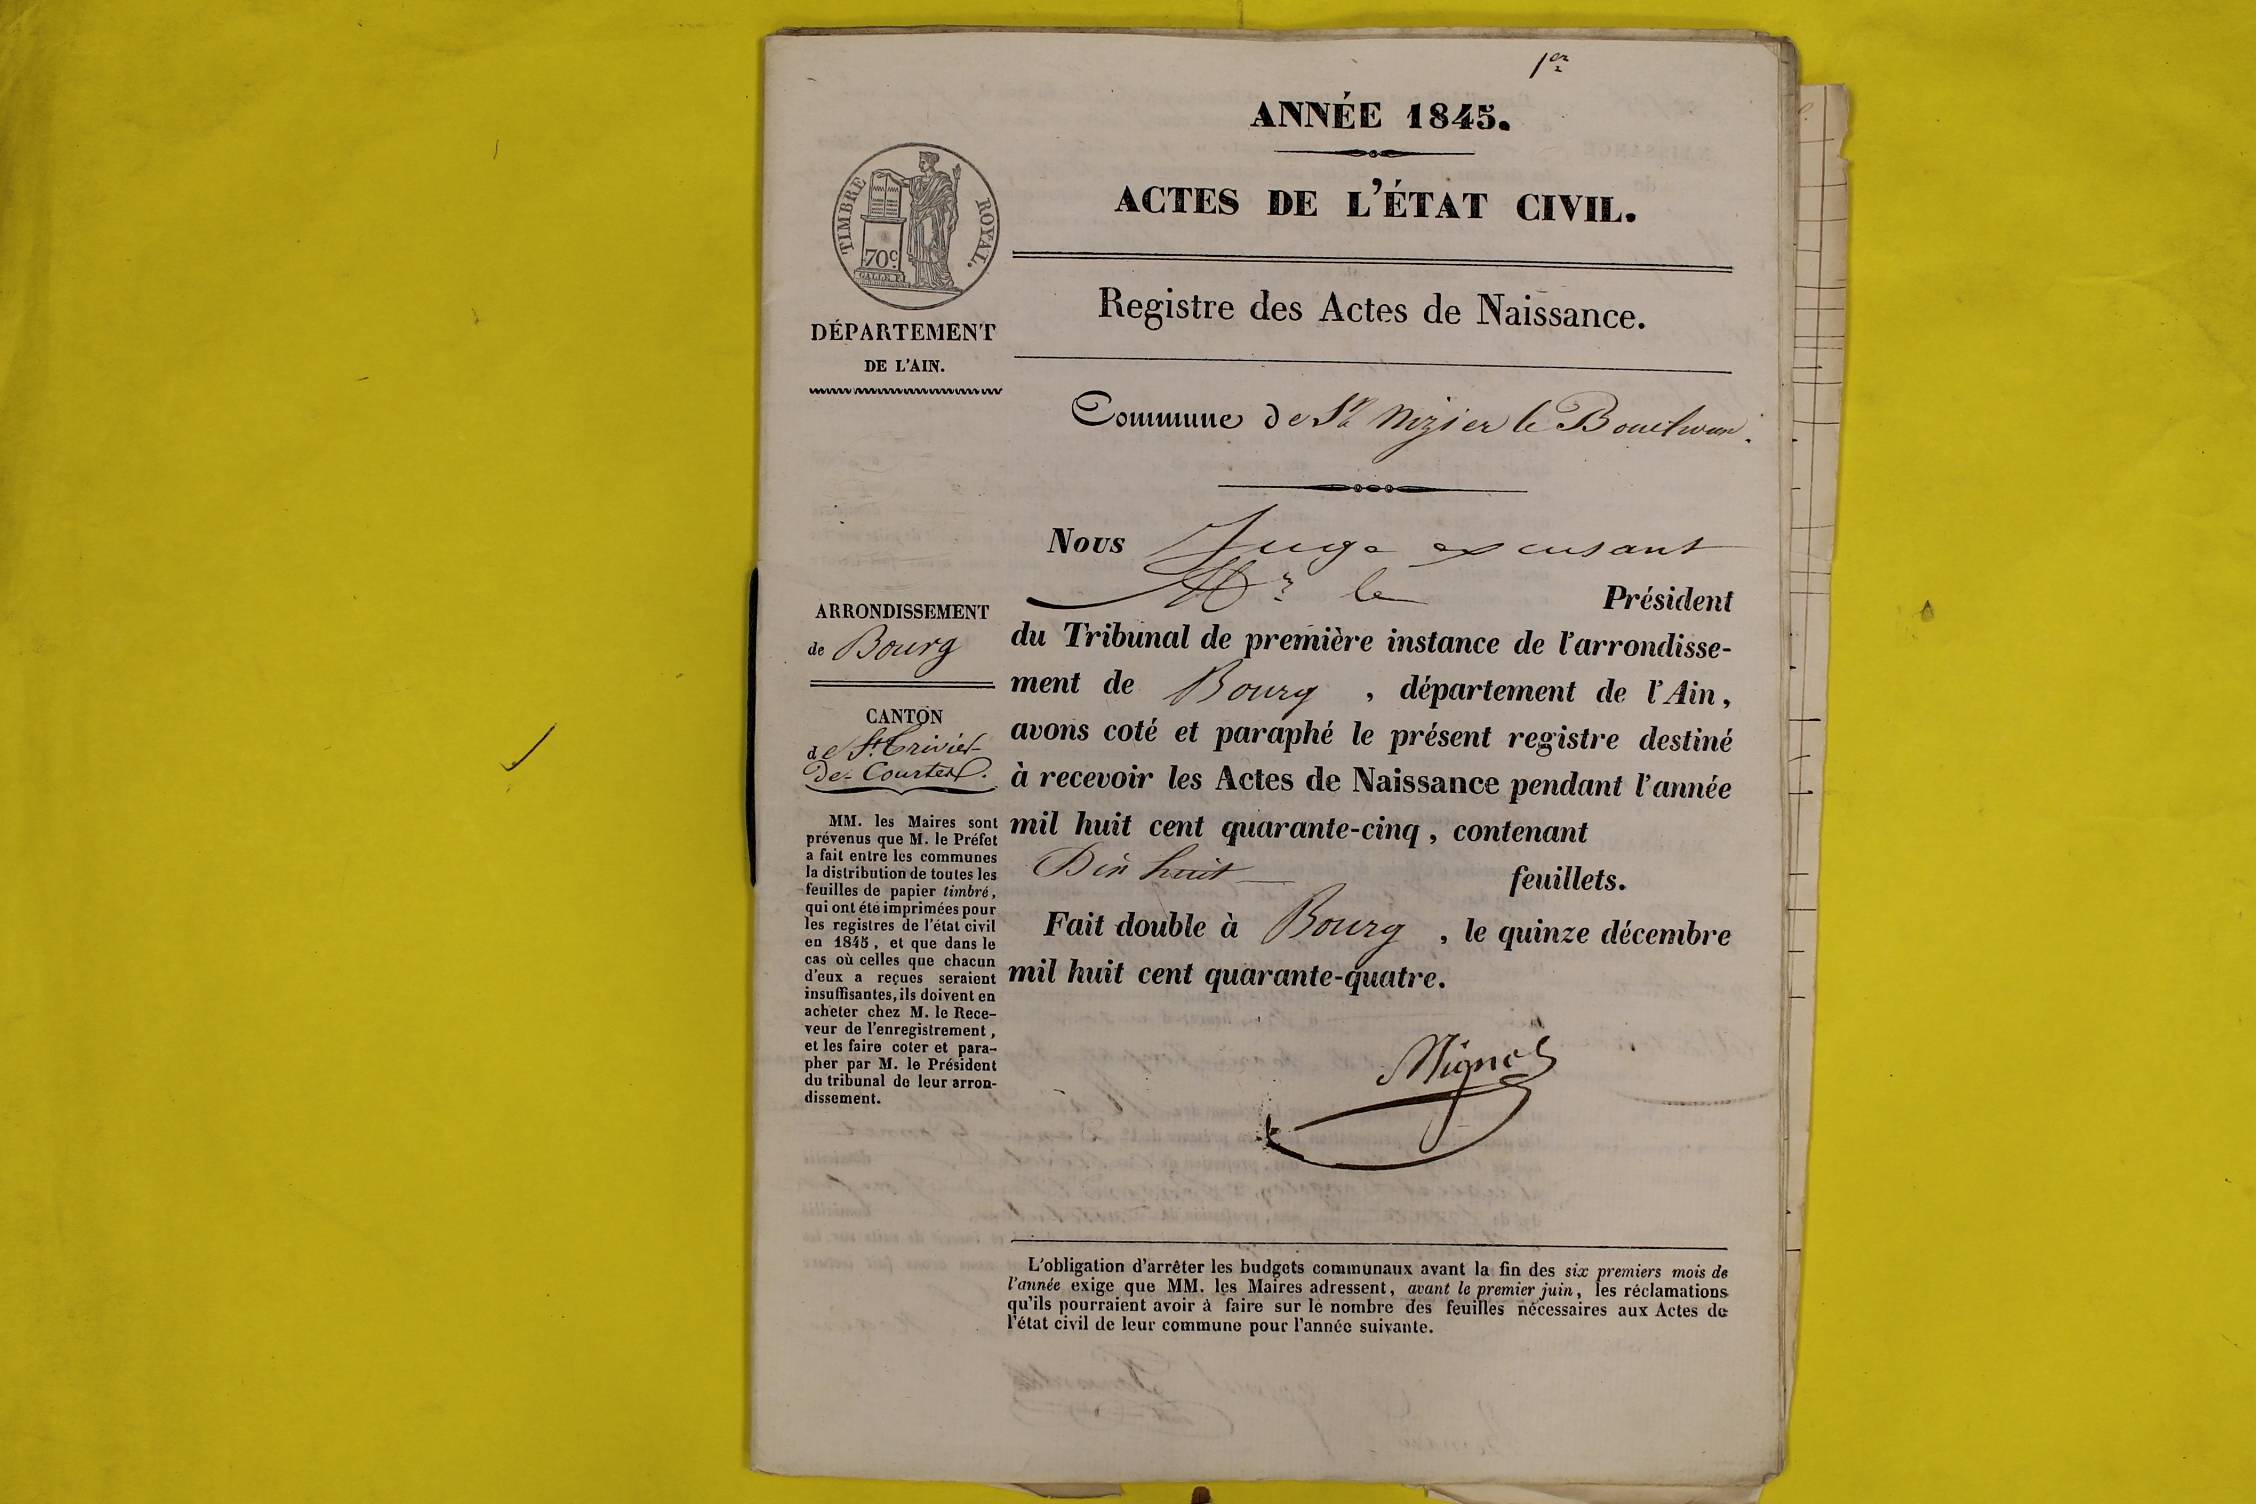 1er
ANNÉE 1845.
ACTES DE L'ÉTAT CIVIL.
TIMBRE ROYAL.
70c.
Registre des Actes de Naissance.
DÉPARTEMENT
DE L'AIN.
Commune de St Nizier le Bouchoux.
Nous Juge excusant
Mr le Président
du Tribunal de première instance de l'arrondisse-
ment de Bourg, département de l'Ain,
avons coté et paraphé le présent registre destiné
à recevoir les Actes de Naissance pendant l'année
mil huit cent quarante-cinq, contenant
Dix huit feuillets.
Fait double à Bourg, le quinze décembre
mil huit cent quarante-quatre.
ARRONDISSEMENT
de Bourg
CANTON
de St Trivier
De Courtes.
MM. les Maires sont
prévenus que M. le Préfet
a fait entre les communes
la distribution de toutes les
feuilles de papier timbré,
qui ont été imprimées pour
les registres de l'état civil
en 1845, et que dans le
cas où celles que chacun
d'eux a reçues seraient
insuffisantes, ils doivent en
acheter chez M. le Rece-
veur de l'enregistrement,
et les faire coter et para-
pher par M. le Président
du tribunal de leur arron-
dissement.
L'obligation d'arrêter les budgets communaux avant la fin des six premiers mois de
l'année exige que MM. les Maires adressent, avant le premier juin, les réclamations
qu'ils pourraient avoir à faire sur le nombre des feuilles nécessaires aux Actes de
l'état civil de leur commune pour l'année suivante.